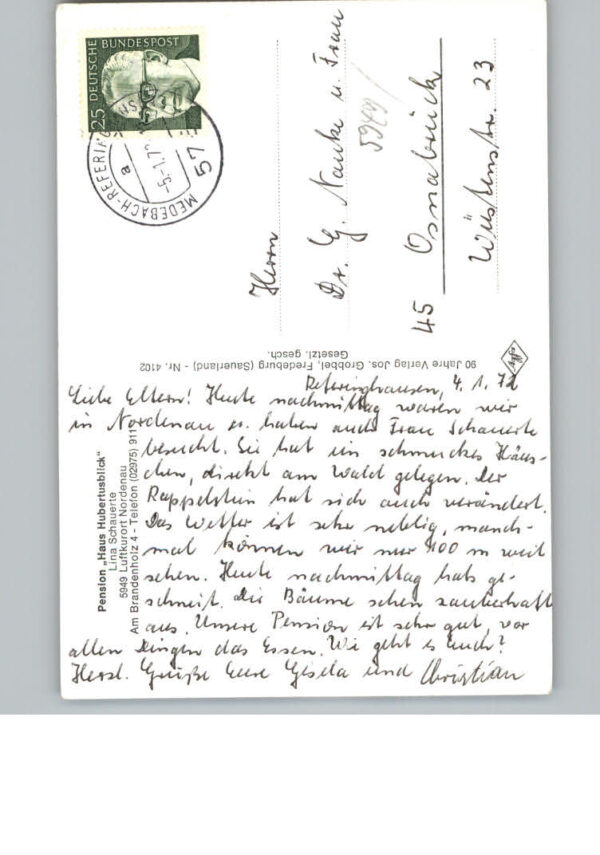 DEUTSCHE
BUNDESPOST
25
MEDEBACH-REFERING
-5.1.7
a
57
Herrn
Dr. G. Nauke u. Frau
45 Osnabrück
Wüstenstr. 23
90 Jahre Verlag Jos. Grobbel, Fredeburg (Sauerland) - Nr. 4102
Gesetzl. gesch.
Pension „Haus Hubertusblick“
Lina Schauerte
5949 Luftkurort Nordenau
Am Brandenholz 4 - Telefon (02975) 911
Referinghausen, 4.1.72
Liebe Eltern! Heute nachmittag waren wir
in Nordenau u. haben auch Frau Schauerte
besucht. Sie hat ein schmuckes Häus-
chen, direkt am Wald gelegen. Der
Rappelstein hat sich auch verändert.
Das Wetter ist sehr neblig, manch-
mal können wir nur 100 m weit
sehen. Heute nachmittag hats ge-
schneit. Die Bäume sehen zauberhaft
aus. Unsere Pension ist sehr gut, vor
allen Dingen das Essen. Wie geht es Euch?
Herzl. Grüße Eure Gisela und Christian